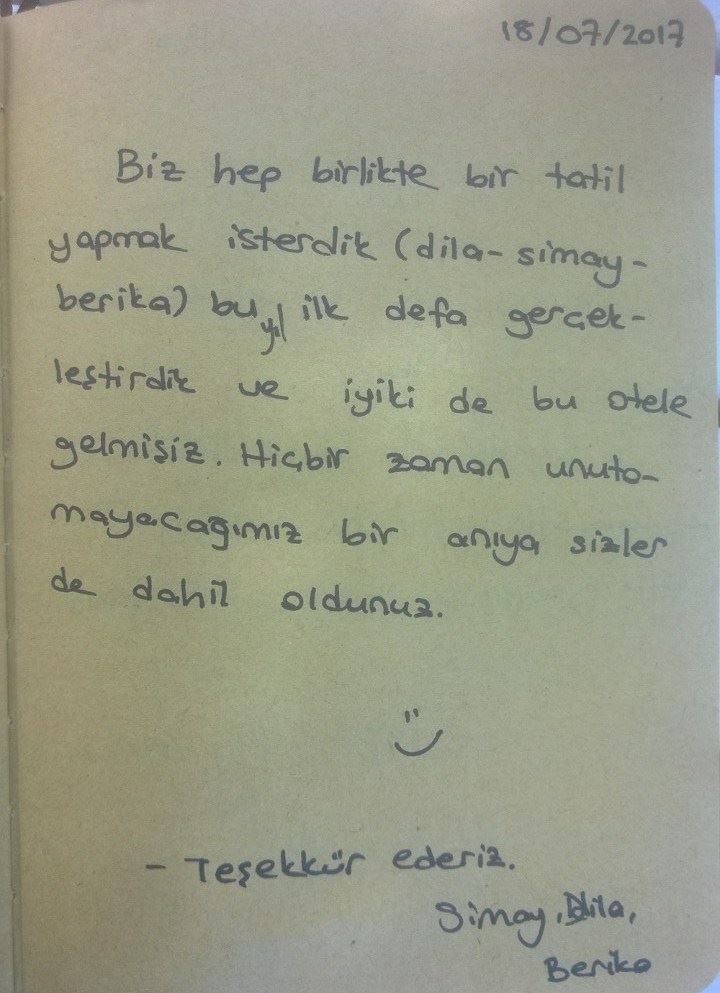 18/07/2017
Biz hep birlikte bir tatil
yapmak isterdik (dila-simay-
berika) bu yıl ilk defa gerçek-
leştirdik ve iyiki de bu otele
gelmişiz. Hiçbir zaman unuta-
mayacağımız bir anıya sizler
de dahil oldunuz.
- Teşekkür ederiz.
Simay, Dila,
Berika